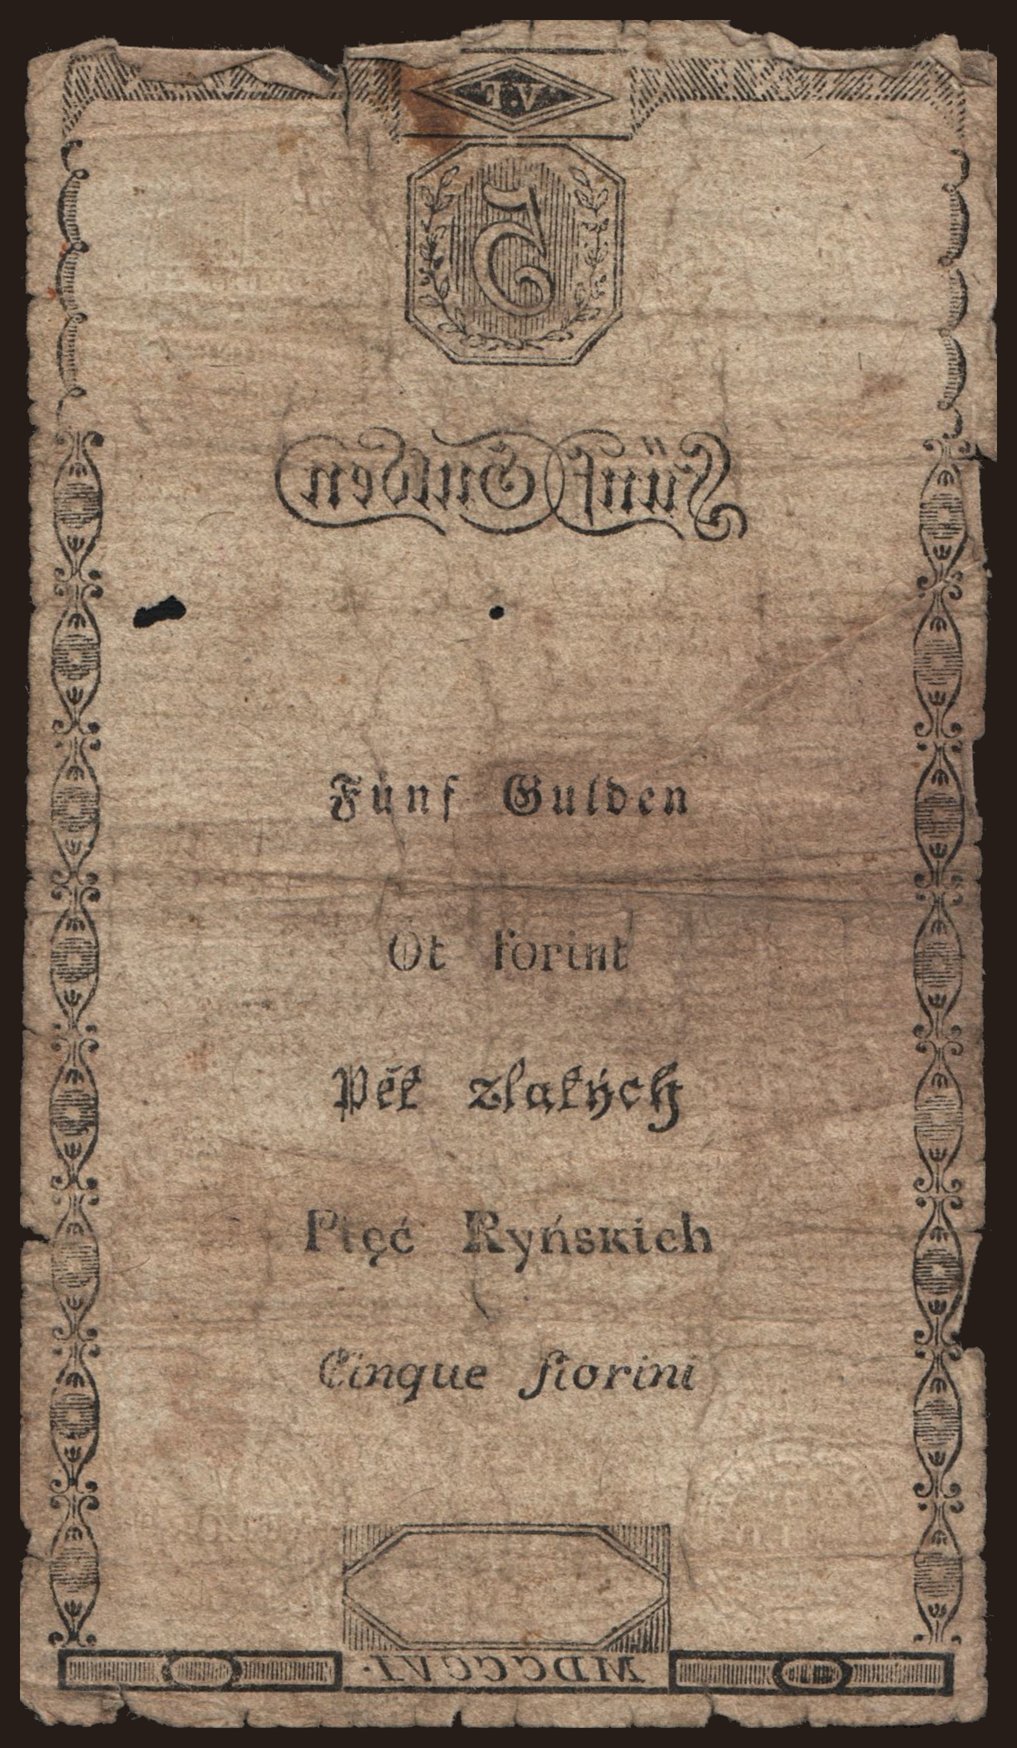 V.T.
5
Fünf Gulden
Fünf Gulden
Öt forint
Pět zlatých
Pięć Ryńskich
Cinque fiorini
MDCCCVI.